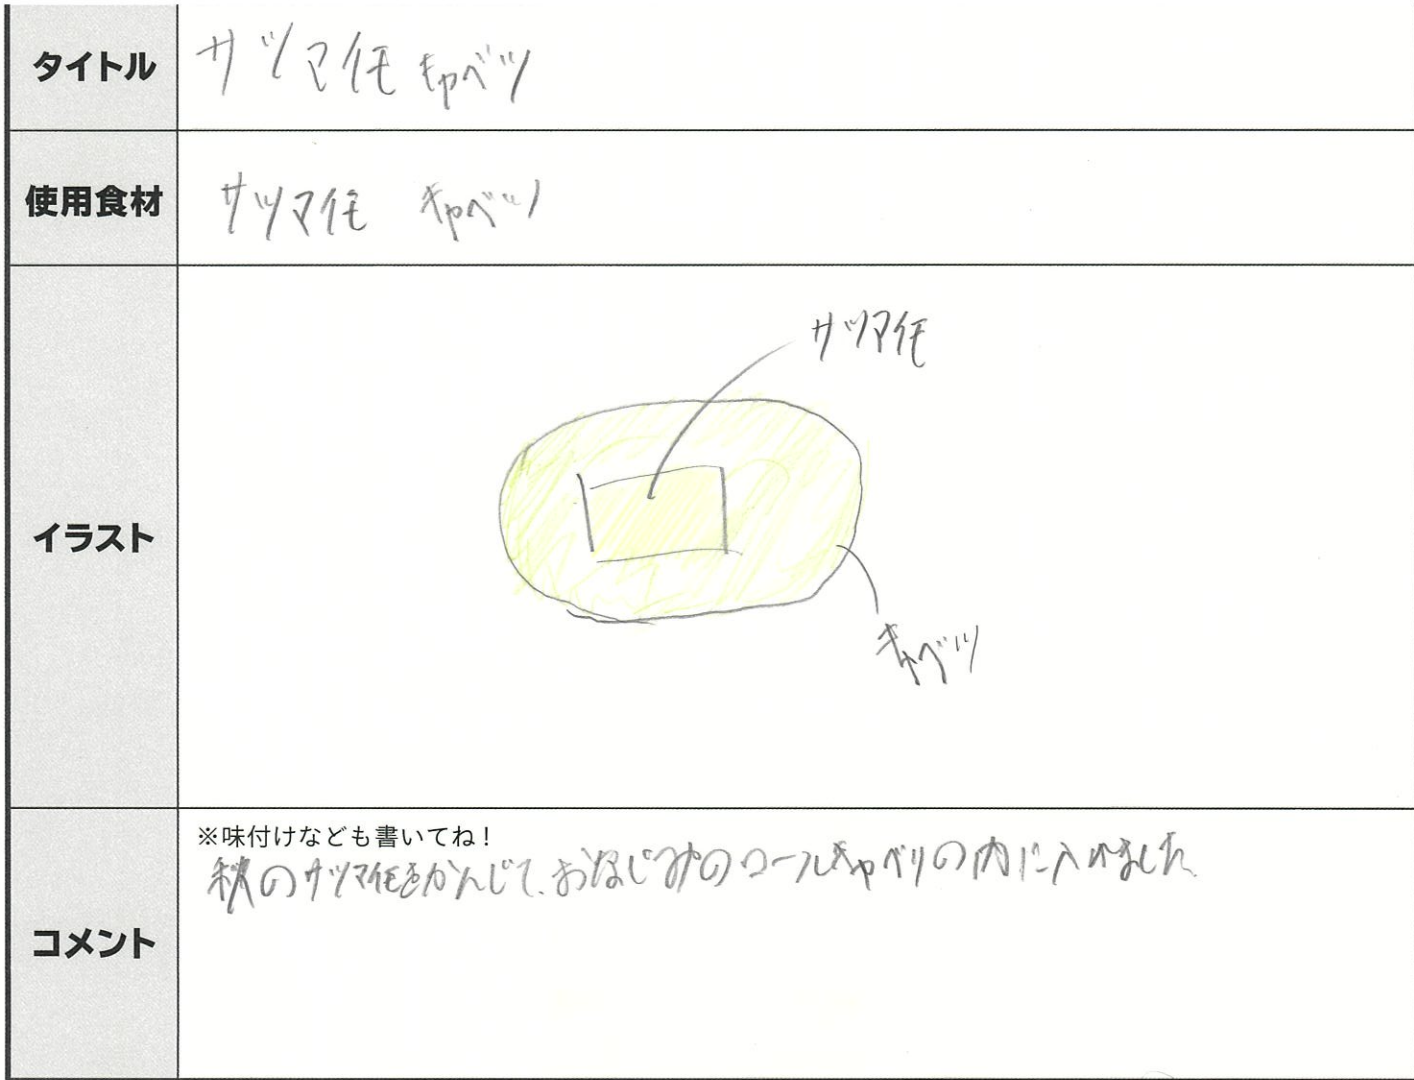 タイトル
サツマイモ キャベツ
使用食材
サツマイモ キャベツ
イラスト
サツマイモ
キャベツ
コメント
※味付けなども書いてね！
秋のサツマイモをかんじて、おなじみのロールキャベツの内に入れました。